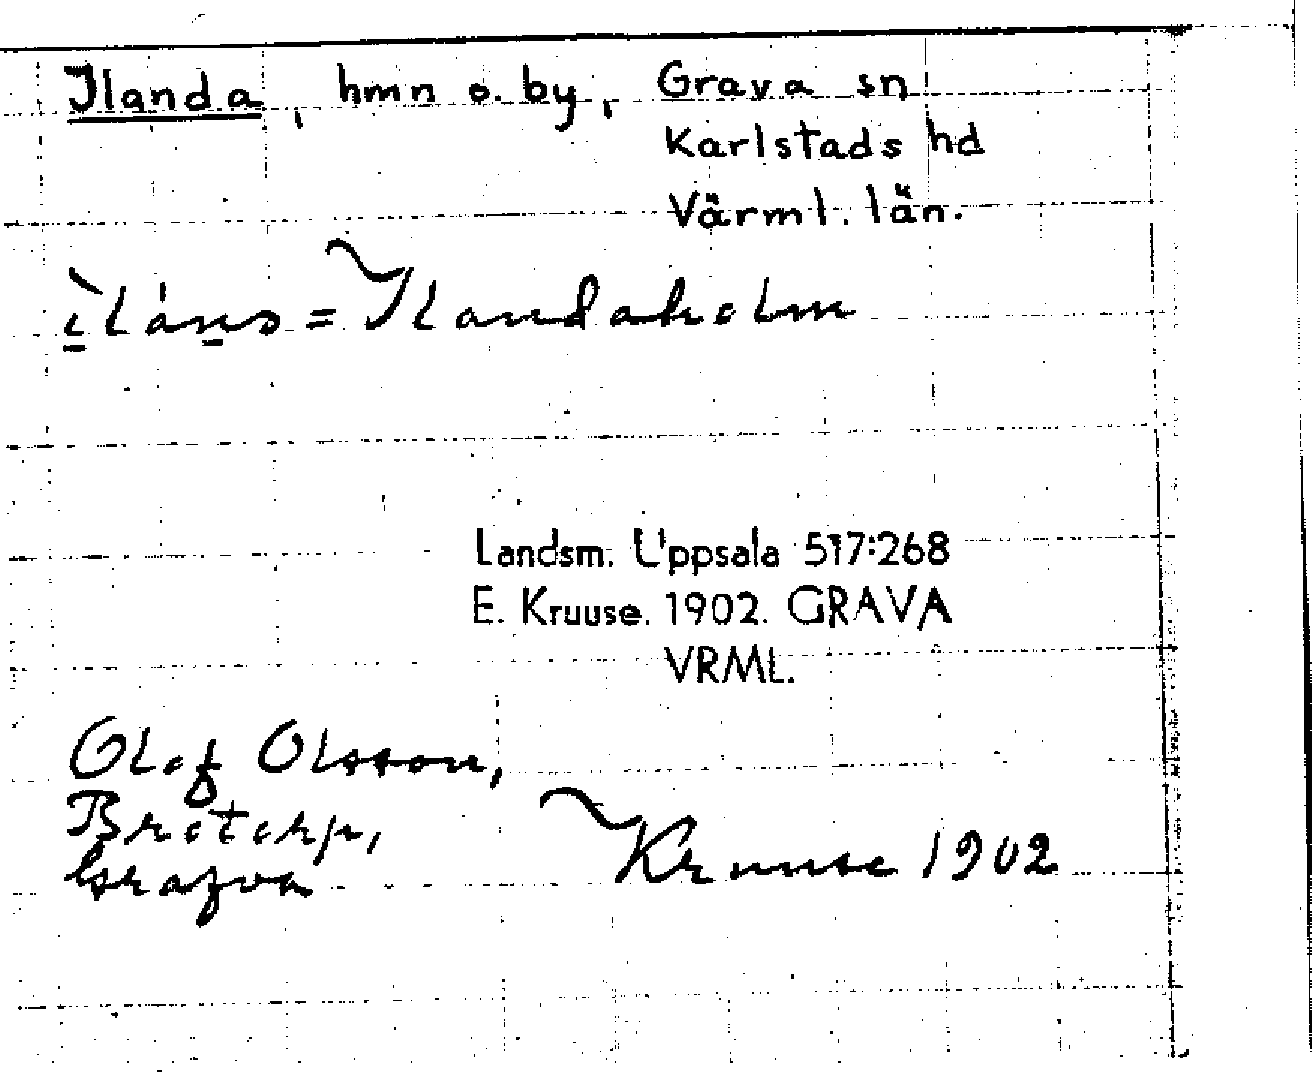 Ilanda, hmn o. by, Grava sn
Karlstads hd
Värml. län.
= Ilandaholm
Landsm. Uppsala 517:268
E. Kruuse. 1902. GRAVA
VRML.
Olof Olsson,
Brotorp,
Grafva
Kruuse 1902